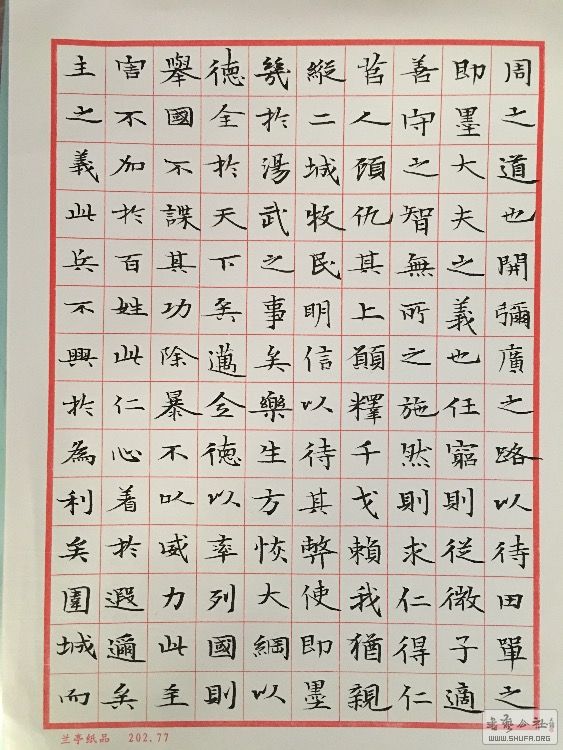 周之道也開彌廣之路以待田單之
即墨大夫之義也任窮則從微子適
善守之智無所之施然則求仁得仁
莒人顧仇其上願釋干戈賴我猶親
縱二城牧民明信以待其弊使即墨
幾於湯武之事矣樂生方恢大綱以
德全於天下矣邁令德以率列國則
舉國不謀其功除暴不以威力此至
害不加於百姓此仁心着於遐邇矣
主之義此兵不興於為利矣圍城而
兰亭纸品 202.77
书法公社
WWW.SHUFA.ORG